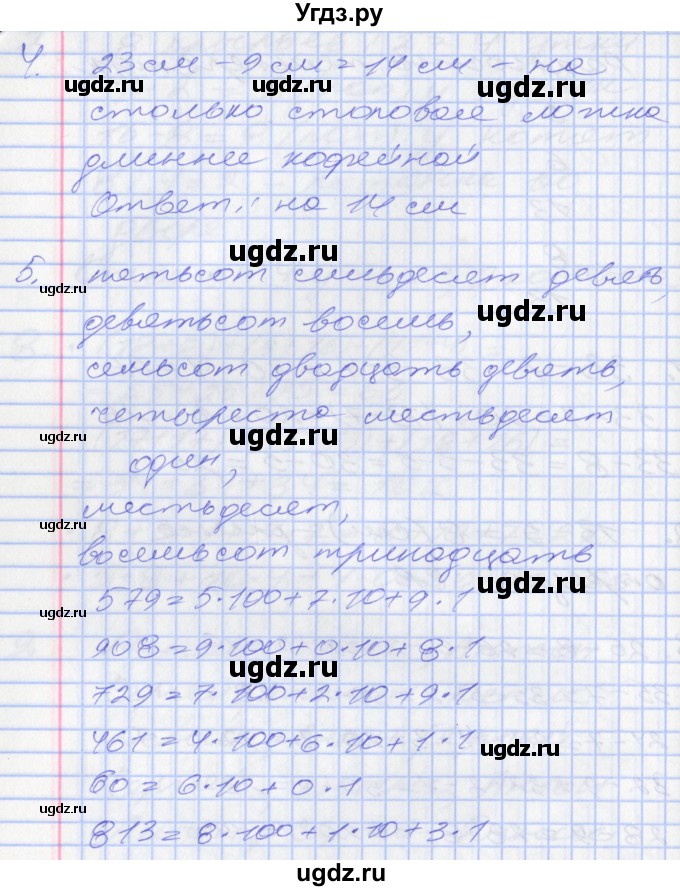 Угдз.ру
4. 23 см - 9 см = 14 см - на
столько столовая ложка
длиннее кофейной
Ответ: на 14 см
5. пятьсот семьдесят девять,
девятьсот восемь,
семьсот двадцать девять,
четыреста шестьдесят
один,
шестьдесят,
восемьсот тринадцать
579 = 5·100 + 7·10 + 9·1
908 = 9·100 + 0·10 + 8·1
729 = 7·100 + 2·10 + 9·1
461 = 4·100 + 6·10 + 1·1
60 = 6·10 + 0·1
813 = 8·100 + 1·10 + 3·1
ugdz.ru
ugdz.ru
ugdz.ru
ugdz.ru
ugdz.ru
ugdz.ru
ugdz.ru
ugdz.ru
ugdz.ru
ugdz.ru
ugdz.ru
ugdz.ru
ugdz.ru